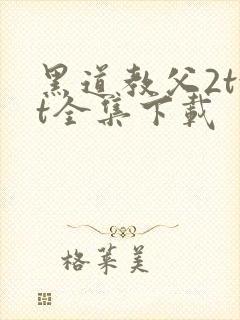 黑道教父2t
t全集下载
格莱美